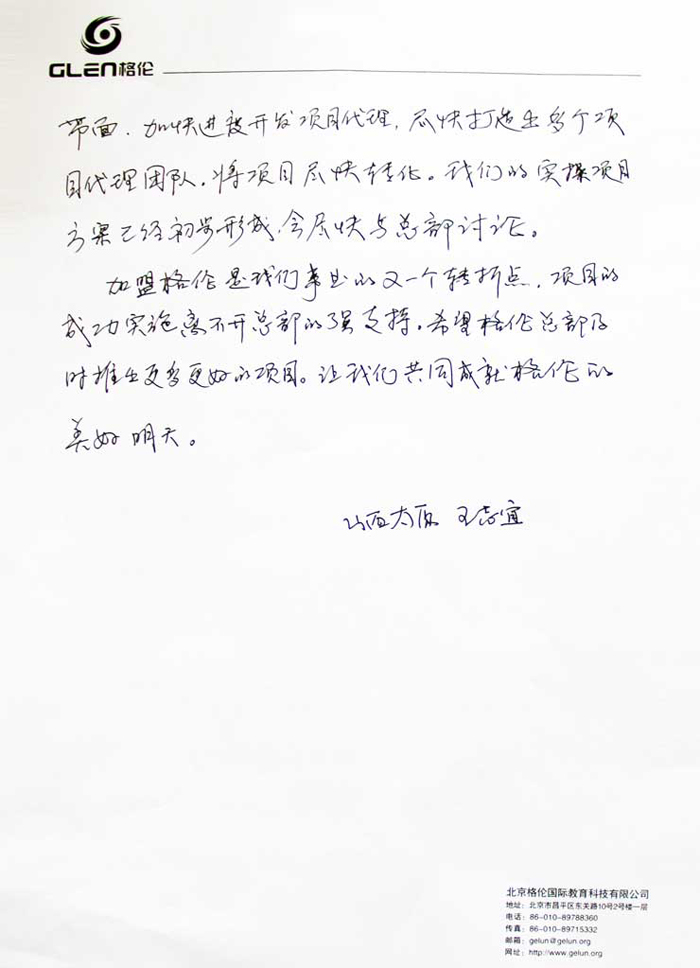 GLEN格伦
带面，加快进度开发项目代理，尽快打造出多个项
目代理团队，将项目尽快转化。我们的实操项目
方案已经初步形成，会尽快与总部讨论。
加盟格伦是我们事业的又一个转折点，项目的
成功实施离不开总部的强支持，希望格伦总部及
时推出更多更好的项目。让我们共同成就格伦的
美好明天。
山西太原 王志宜
北京格伦国际教育科技有限公司
地址：北京市昌平区东关路10号2号楼一层
电话：86-010-89788360
传真：86-010-89715332
邮箱：gelun@gelun.org
网址：http://www.gelun.org